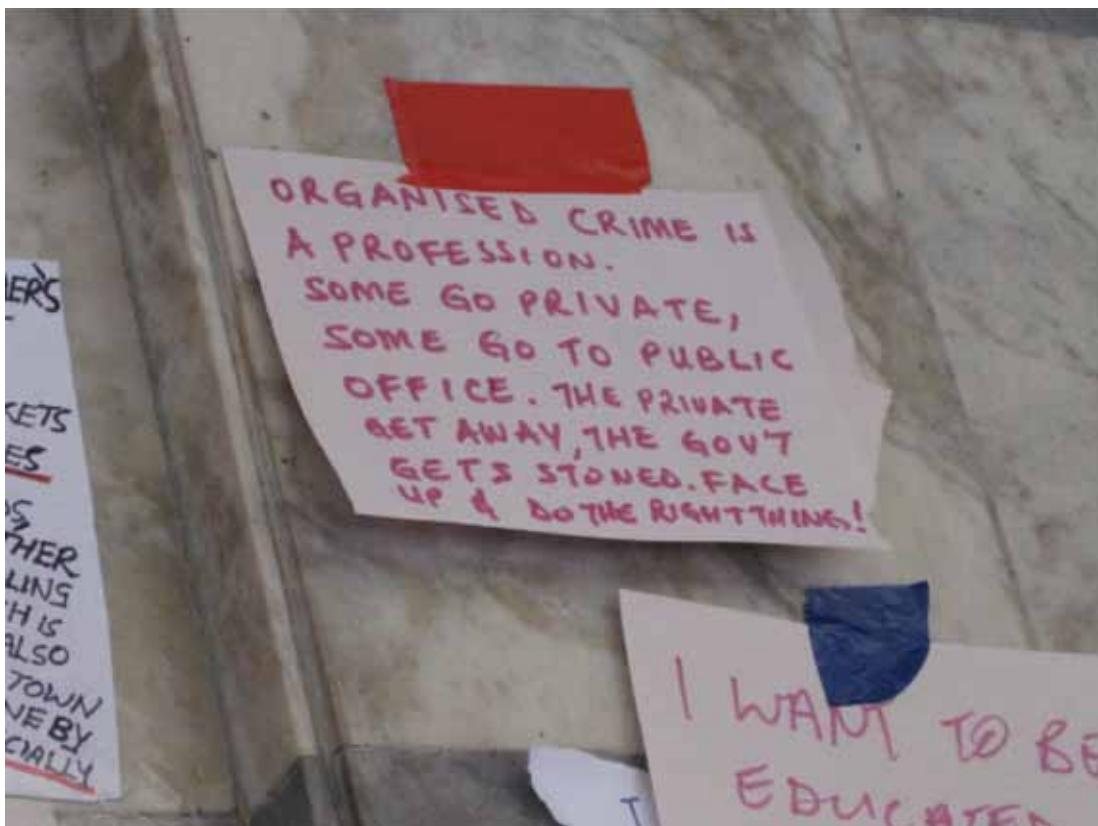 ORGANISED CRIME IS
A PROFESSION.
SOME GO PRIVATE,
SOME GO TO PUBLIC
OFFICE. THE PRIVATE
GET AWAY, THE GOV'T
GETS STONED. FACE
UP & DO THE RIGHT THING!
ER'S
KETS
ES
THER
LING
H IS
ALSO
TOWN
NE BY
CIALLY
I WANT TO BE
EDUCATED
T